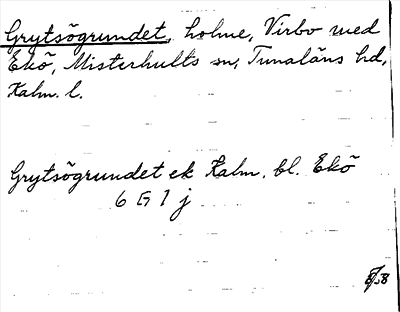 Grytsögrundet, holme, Virbo med
Ekö, Misterhults sn, Tunaläns hd,
Kalm. l.
Grytsögrundet ek Kalm. bl. Ekö
6 G 1 j